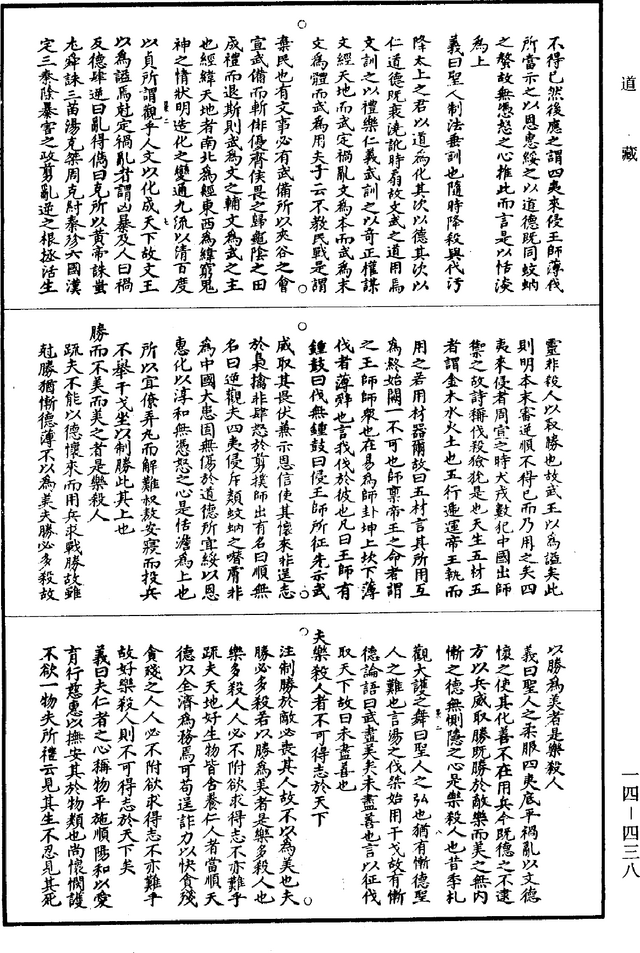 道藏
不得已然後應之謂四夷來侵王師薄伐
所當示之以恩惠綏之以道德既同蚊蚋
之螫故無憑怒之心推此而言是以恬淡
為上
義曰聖人制法垂訓也隨時降殺與代污
隆太上之君以道為化其次以德其次以
仁道德既衰澆訛時扇故文武之道用焉
文訓之以禮樂仁義武訓之以奇正權謀
文經天地而武定禍亂文為本而武為末
文為體而武為用夫子云不教民戰是謂
棄民也有文事必有武備所以夾谷之會
宣武備而斬俳優齊侯畏之歸龜陰之田
成禮而退斯則武為文之輔文為武之主
也經緯天地者南北為經東西為緯窮鬼
神之情狀明造化之變通九流以清百度
以貞所謂觀乎人文以化成天下故文王
以為謚焉剋定禍亂者謂凶暴及人曰禍
反德肆逆曰亂得儁曰克所以黃帝誅蚩
尤舜誅三苗湯克桀周克紂秦殄六國漢
定三秦除暴害之政剪亂逆之根拯活生
靈非殺人以取勝也故武王以為謚矣此
則明本末審逆順不得已而乃用之矣四
夷來侵者周宣之時犬戎數犯中國出師
禦之故詩稱伐殺獫狁是也天生五材五
者謂金木水火土也五行遞運帝王執而
用之若用材器爾故曰五材言其所用互
為終始闕一不可也師稟帝王之命者謂
之王師師眾也在易為師卦坤上坎下薄
伐者薄辭也言我伐於彼也凡曰王師有
鍾鼓曰伐無鍾鼓曰侵王師所征先示武
威取其畏伏兼示恩信使其懷來非逞志
於梟擒非肆忿於剪撲師出有名曰順無
名曰逆觀夫四夷侵斥類蚊蚋之噆膚非
為中國大患固無傷於道德所宜綏以恩
惠化以淳和無憑怒之心是恬澹為上也
所以宜僚弄丸而解難叔敖安寢而投兵
不舉干戈坐以制勝此其上也
勝而不美而美之者是樂殺人
疏夫不能以德懷來而用兵求戰勝故雖
剋勝猶慚德薄不以為美夫勝必多殺故
以勝為美者是樂殺人
義曰聖人之柔服四夷底平禍亂以文德
懷之使其化善不在用兵今既德之不逮
方以兵威取勝既勝於敵樂而美之無內
慚之德無惻隱之心是樂殺人也昔季札
觀大濩之舞曰聖人之弘也猶有慚德聖
人之難也言湯之伐桀始用干戈故有慚
德論語曰武盡美矣未盡善也言以征伐
取天下故曰未盡善也
夫樂殺人者不可得志於天下
注制勝於敵必喪其人故不以為美也夫
勝必多殺若以勝為美者是樂多殺人也
樂多殺人人必不附欲求得志不亦難乎
疏夫天地好生物皆含養仁人者當順天
德以全濟為務焉可苟逞詐力以快貪殘
貪殘之人人必不附欲求得志不亦難乎
故好樂殺人則不可得志於天下矣
義曰夫仁者之心稱物平施順陽和以愛
育行慈惠以撫安其於物類也尚懷憫護
不欲一物失所禮云見其生不忍見其死
一四—四三八